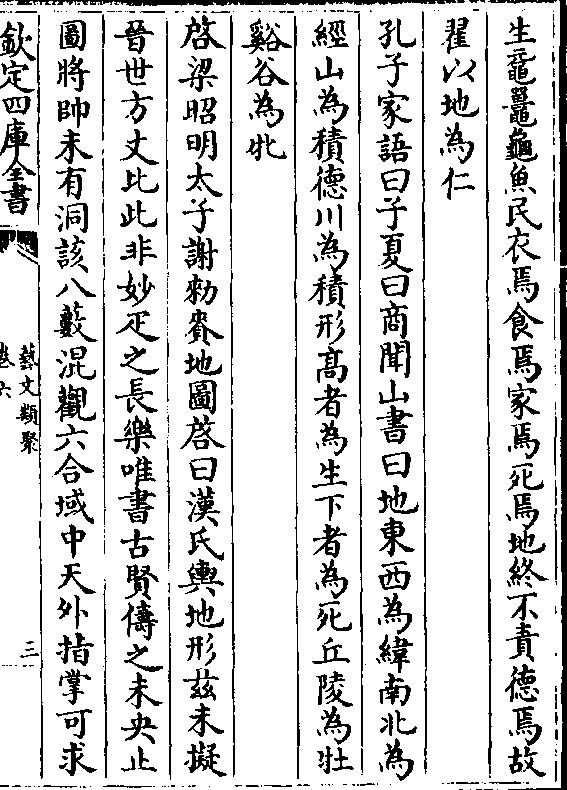 生黿鼉龜魚民衣焉食焉家焉死焉地終不責德焉故
翟以地為仁
孔子家語曰子夏曰商聞山書曰地東西為緯南北為
經山為積德川為積形髙者為生下者為死丘陵為牡
谿谷為牝
啓梁昭明太子謝勑賚地圖啓曰漢氏輿地形兹未擬
晉世方丈比此非妙疋之長樂唯書古賢儔之未央止
圖將帥未有洞該八藪混觀六合域中天外指掌可求
欽定四庫全書
藝文類聚
卷六
三